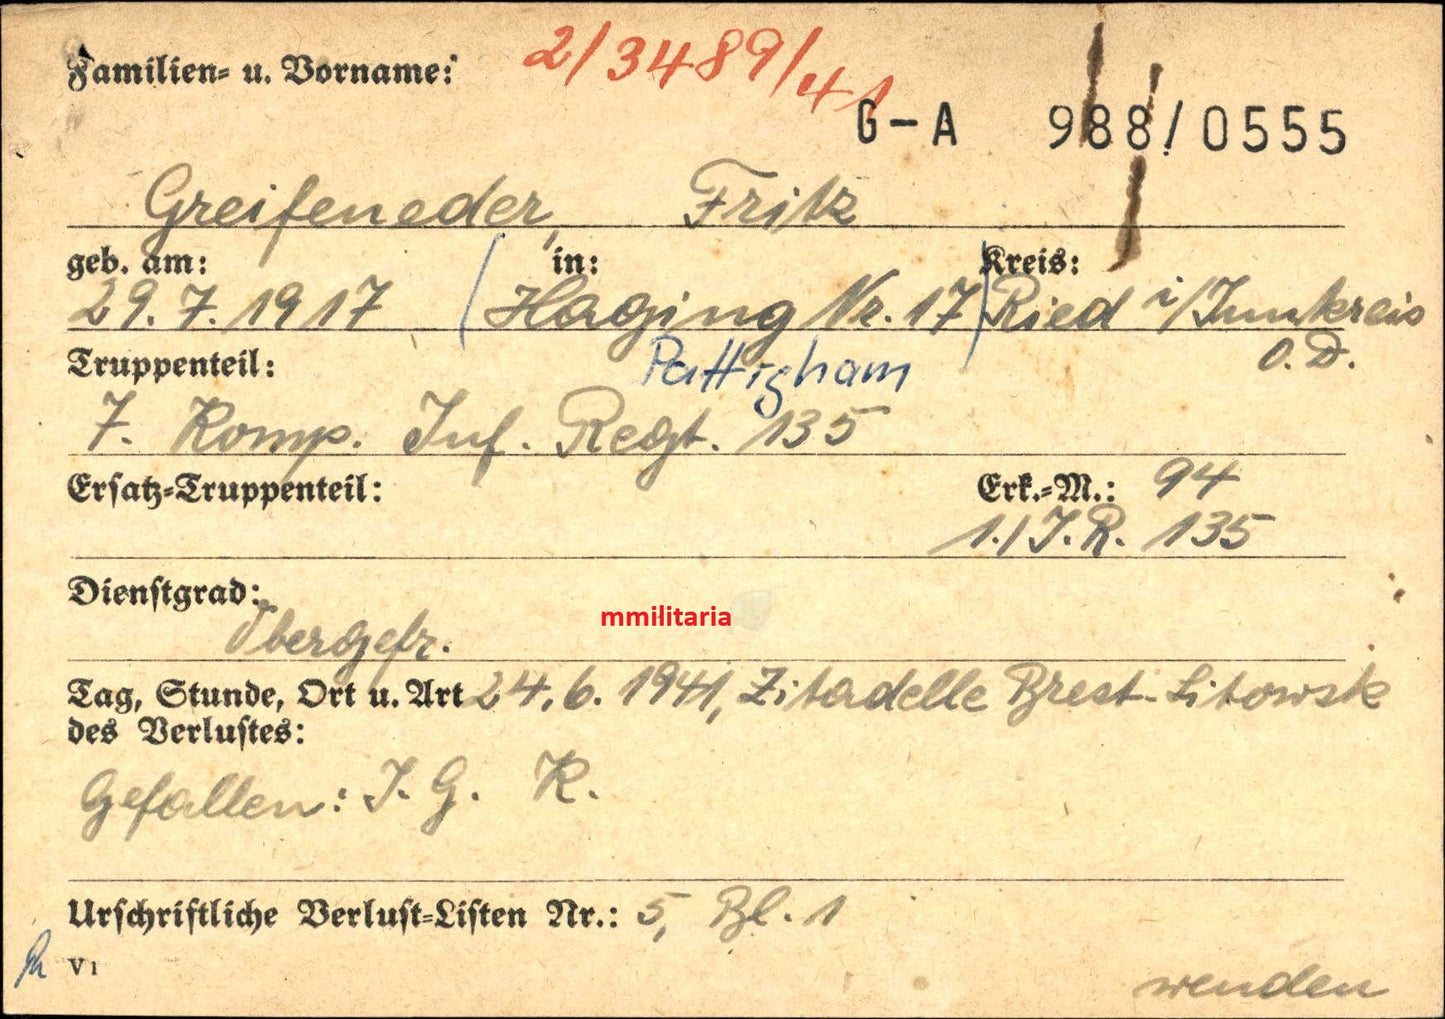 Familien- u. Vorname: 2/3489/41
G-A 988/0555
Greifeneder, Fritz
geb. am: in: Kreis:
29.7.1917 (Haging Nr. 17) Ried i/Innkreis
Pattigham O.D.
Truppenteil:
7. Komp. Inf. Regt. 135
Ersatz-Truppenteil: Erk.-M.: 94
1./I.R. 135
Dienstgrad:
Obergefr.
mmilitaria
Tag, Stunde, Ort u. Art 24.6.1941, Zitadelle Brest-Litowsk
des Verlustes:
Gefallen: I. G. K.
Urschriftliche Verlust-Listen Nr.: 5, Bl. 1
V 1
wenden